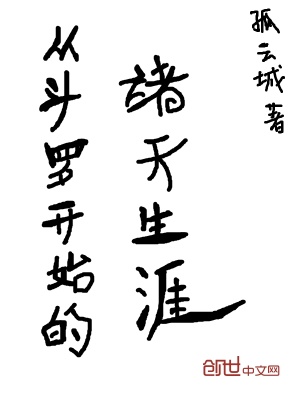 从斗罗开始的
诸天生涯
孤云城著
创世中文网